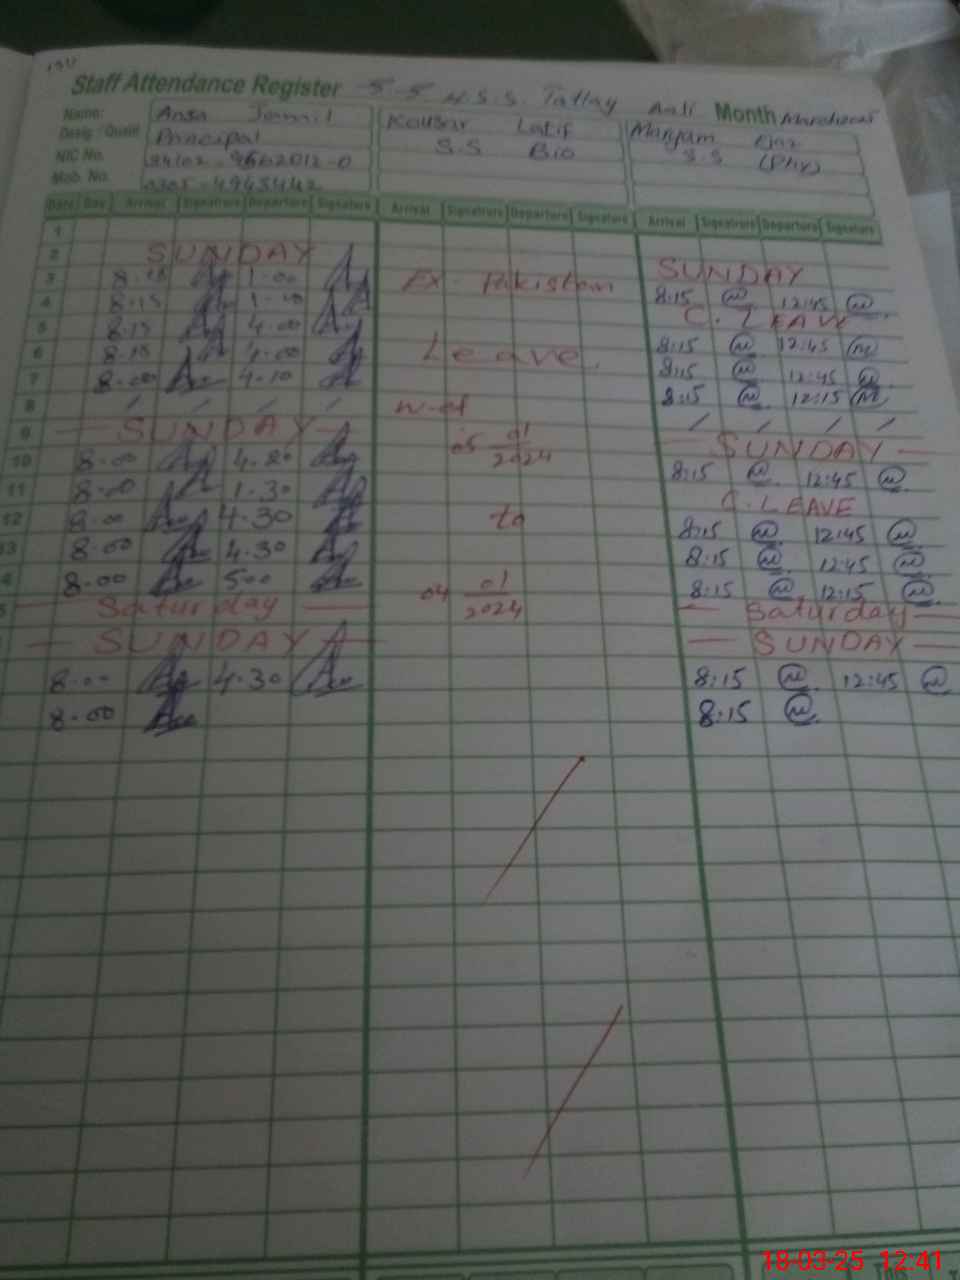 Staff Attendance Register S.S H.S.S. Tatlay Aali Month March 2025
Name: Ansa Jamil Kausar Latif Maryam
Desig / Qualif Principal S.S Bio S.S (Phy)
NIC No.
Mob. No.
Date Day Arrival Signature Departure Signature Arrival Signature Departure Signature Arrival Signature Departure Signature
1
2 SUNDAY SUNDAY
3 8.15 1.00 Ex. Pakistan 8:15 12:45
4 8:15 1.10 C. LEAVE
5 8:15 4.00 8:15 12:45
6 8.15 4.00 Leave. 8:15 12:45
7 8.00 4.10 8:15 12:15
8 w.ef
9 SUNDAY 05 01 2024 SUNDAY
10 8.00 4.20 8:15 12:45
11 8.00 1.30 C. LEAVE
12 8.00 4.30 to 8:15 12:45
13 8.00 4.30 8:15 12:45
8.00 5.00 04 01 2024 8:15 12:15
Saturday Saturday
SUNDAY SUNDAY
8.00 4.30 8:15 12:45
8.00 8:15
18-03-25 12:41